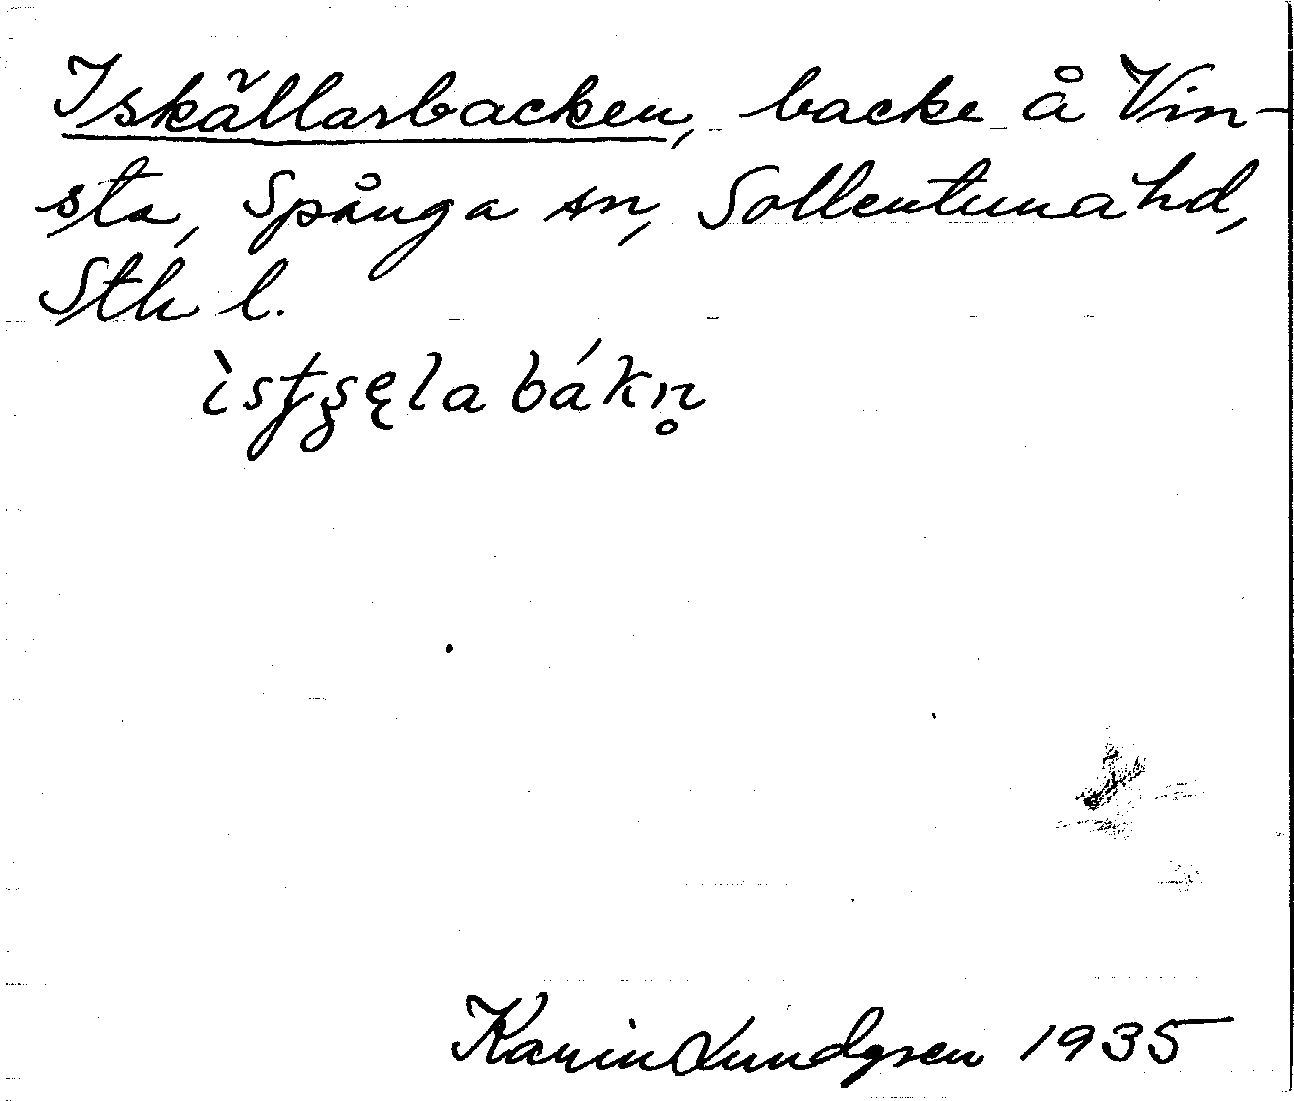 Iskällarbacken, backe å Vin-
sta, Spånga sn, Sollentuna hd,
Sth l.
ìstʂęlabákn̥
Karin Lundgren 1935